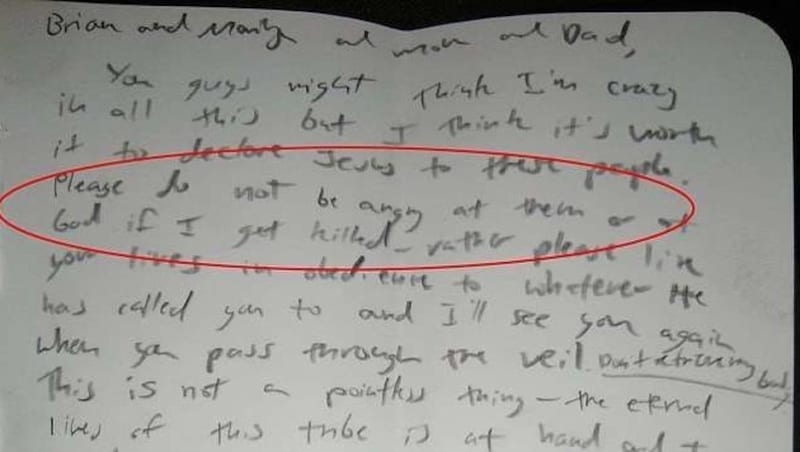 Brian and Marilyn and mom and Dad,
You guys might think I'm crazy
in all this but I think it's worth
it to declare Jesus to these people.
Please do not be angry at them or at
God if I get killed - rather please live
your lives in obedience to whatever He
has called you to and I'll see you again
when you pass through the veil. Don't retrieve my body
This is not a pointless thing - the eternal
lives of this tribe is at hand and I